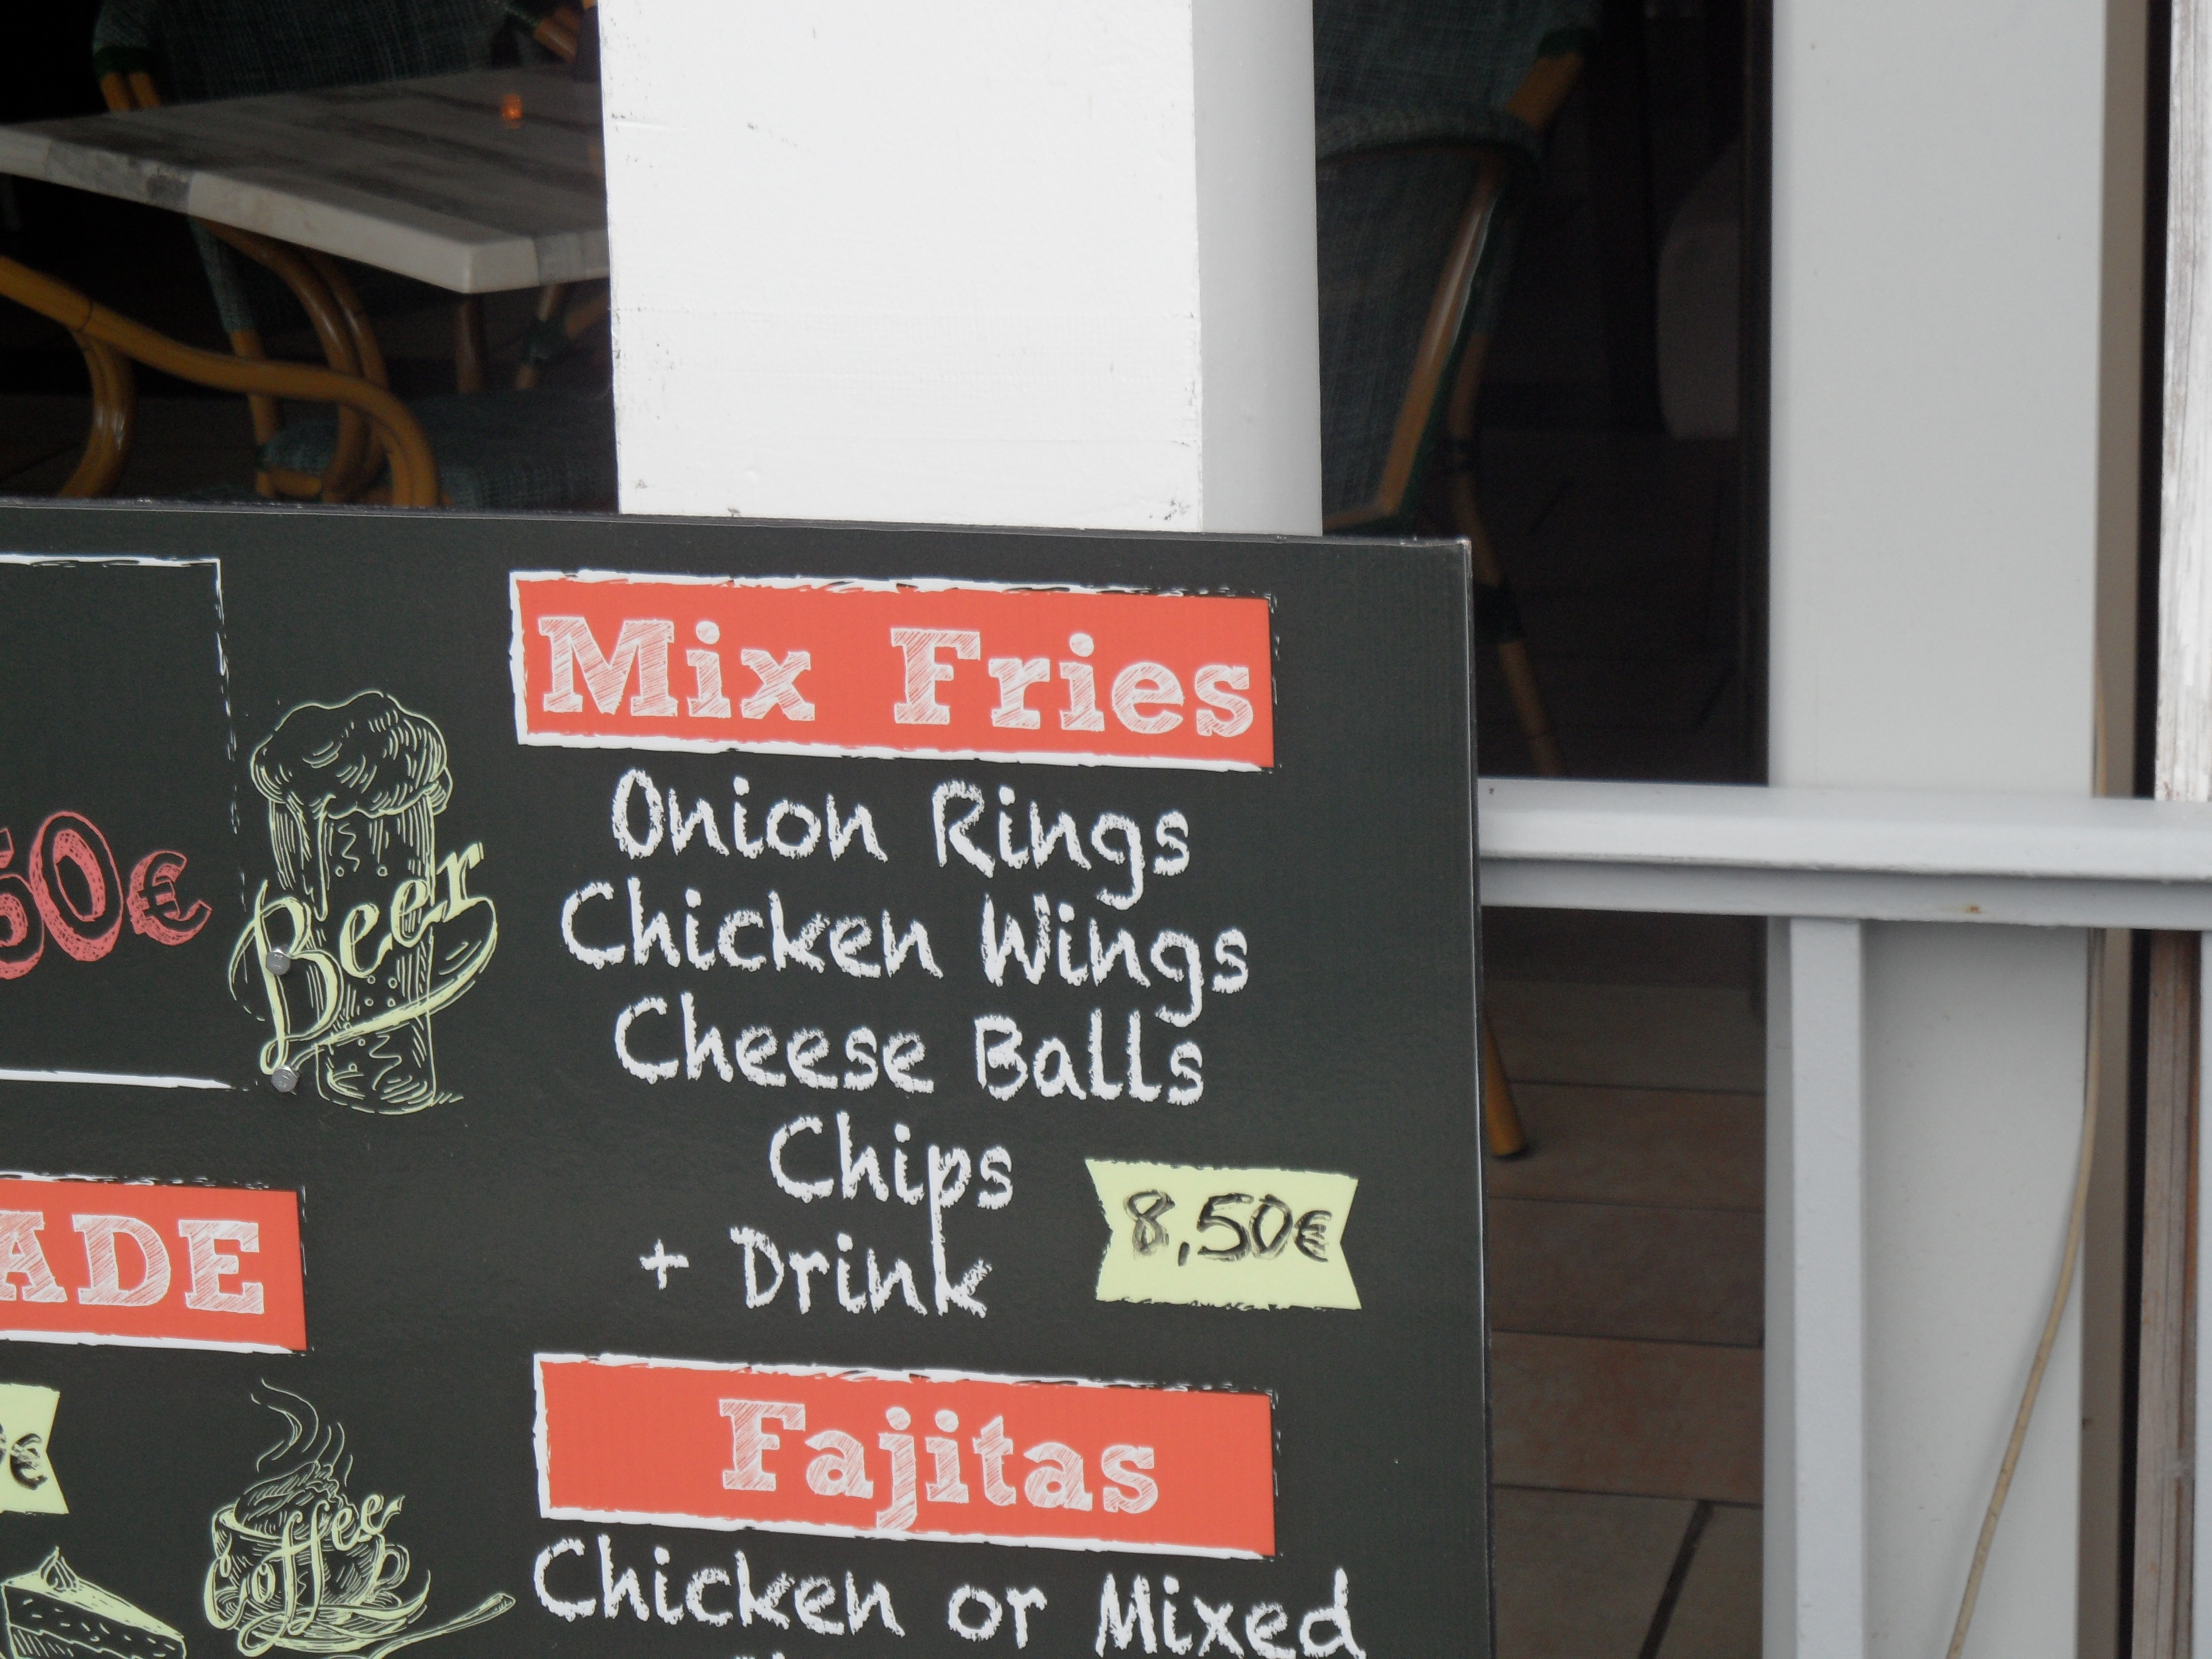 Mix Fries
Onion Rings
Chicken Wings
Cheese Balls
Chips
+ Drink
8,50€
Fajitas
Chicken or Mixed
50€
Beer
ADE
€
Coffee